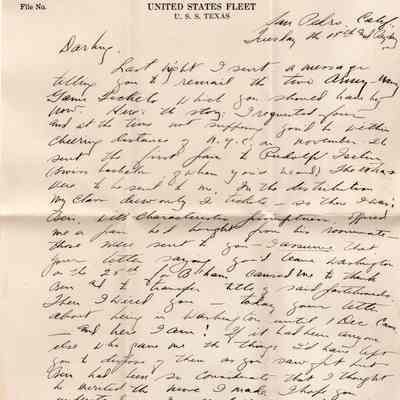 File No.
UNITED STATES FLEET
U. S. S. TEXAS
San Pedro, Calif.
Tuesday the
Darling,
Last night I sent a message
telling you to remail the two Army-Navy
Game Tickets which you should have by
now. Here's the story: I requested four
and at the time not supposing you'd be within
cheering distance of N.Y.C. in November
sent the first pair to Rudolph
of whom you've heard) The others
were to be sent to me. In the distribution
my class drew only 2 tickets – so there I was!
Ben, with characteristic offered
me a pair he'd bought from his roommate –
those were sent to you – I assume that
your letter saying you'd leave Washington
on the 25th for caused me to think
Ben to transfer
Then I wired you – today your letter
about being in Washington until 1 Dec came
– and here I am! If it had been anyone
else who gave me the things I'd have left
you to dispose of them as you saw fit but
Ben had been so considerate that I thought
he merited the move I made. I hope you